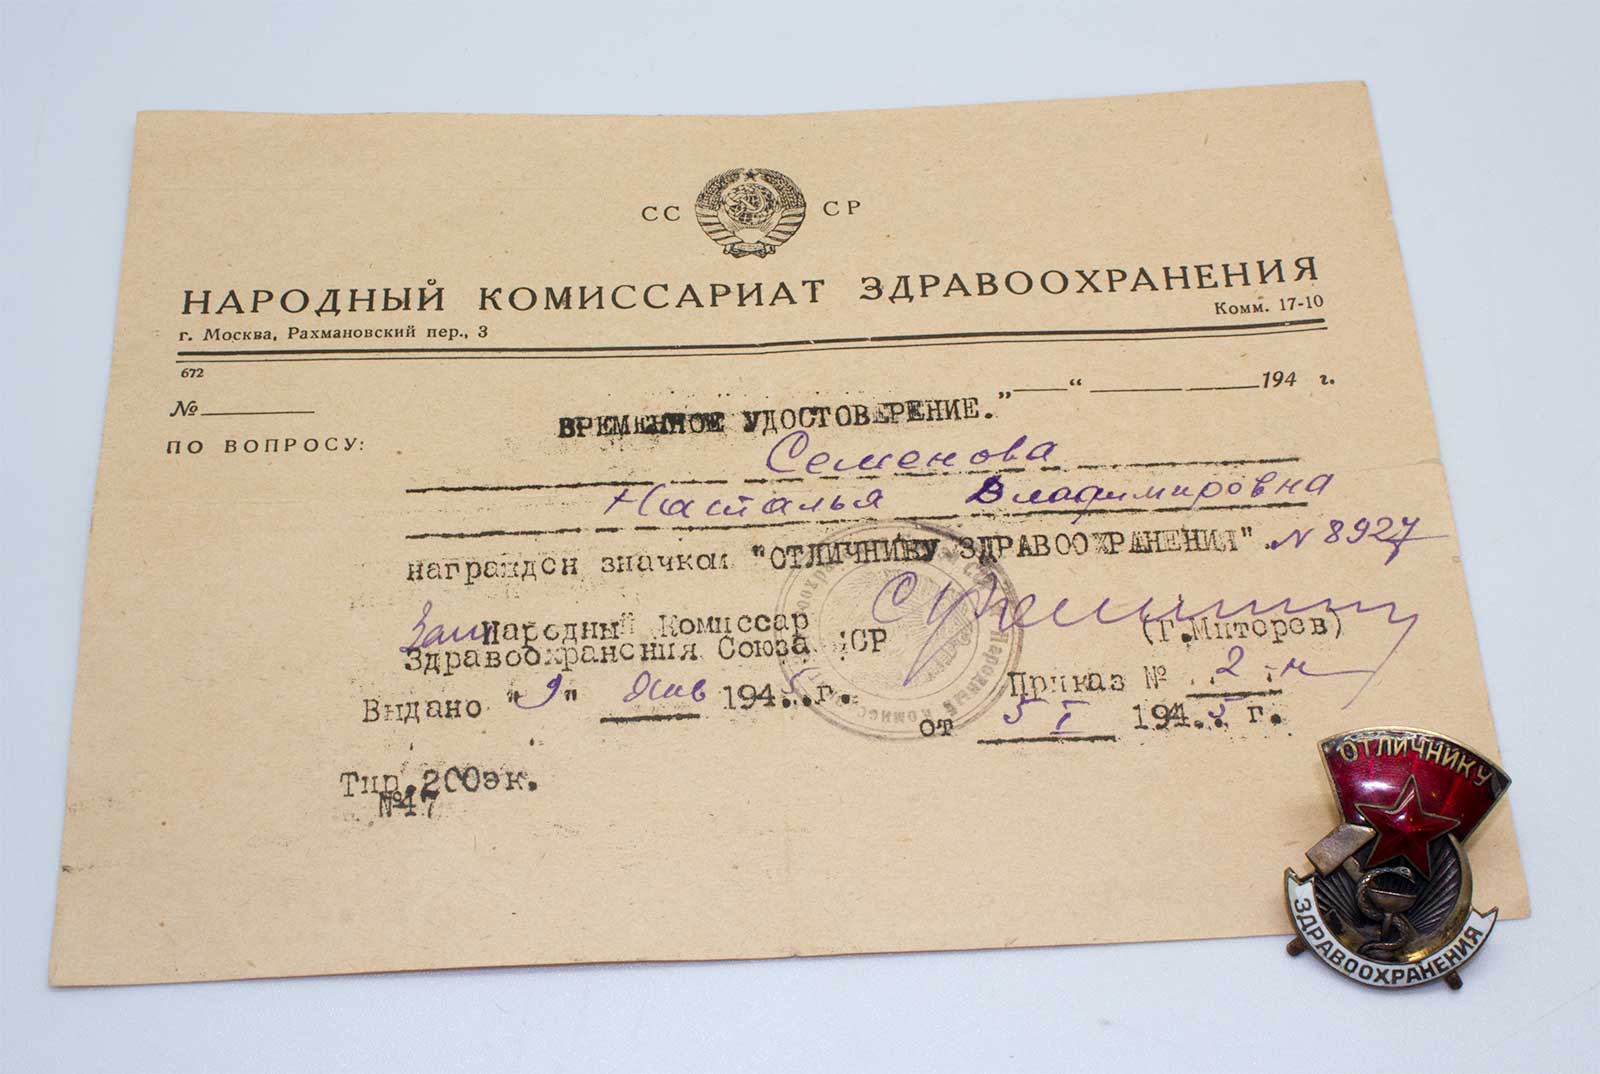 СС СР
НАРОДНЫЙ КОМИССАРИАТ ЗДРАВООХРАНЕНИЯ
г. Москва, Рахмановский пер., 3
Комм. 17-10
672
№
"—" 194 г.
ВРЕМЕННОЕ УДОСТОВЕРЕНИЕ.
ПО ВОПРОСУ:
Семенова
Наталья Владимировна
награжден значком "ОТЛИЧНИКУ ЗДРАВООХРАНЕНИЯ" N 8927
Зам Народный Комиссар
(Г.Митерев)
Здравоохранения Союза ССР
Приказ № 2-н
Выдано "9" янв 1945г.
от 5 I 1945 г.
Тир.200эк.
№47
ОТЛИЧНИКУ
ЗДРАВООХРАНЕНИЯ